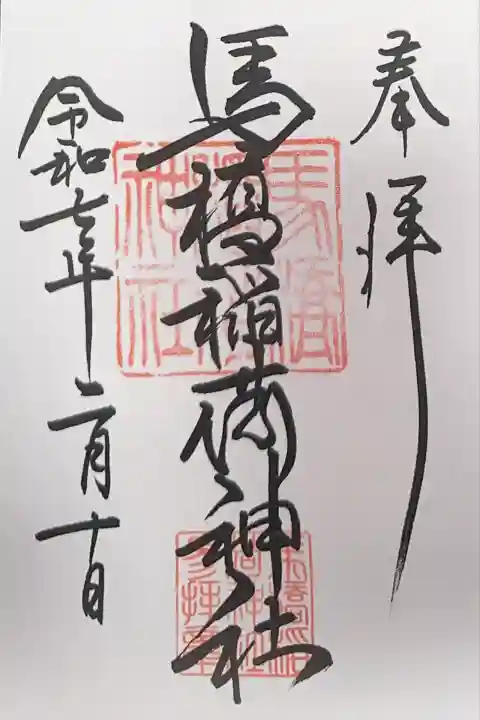 奉拝
馬橋稲荷神社
令和七年二月十日